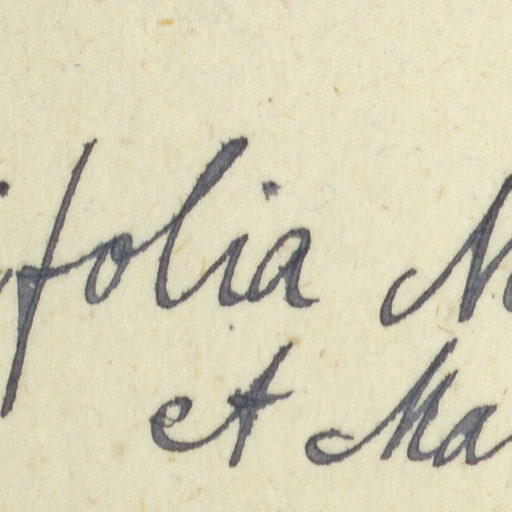 ifolia M
et Ma